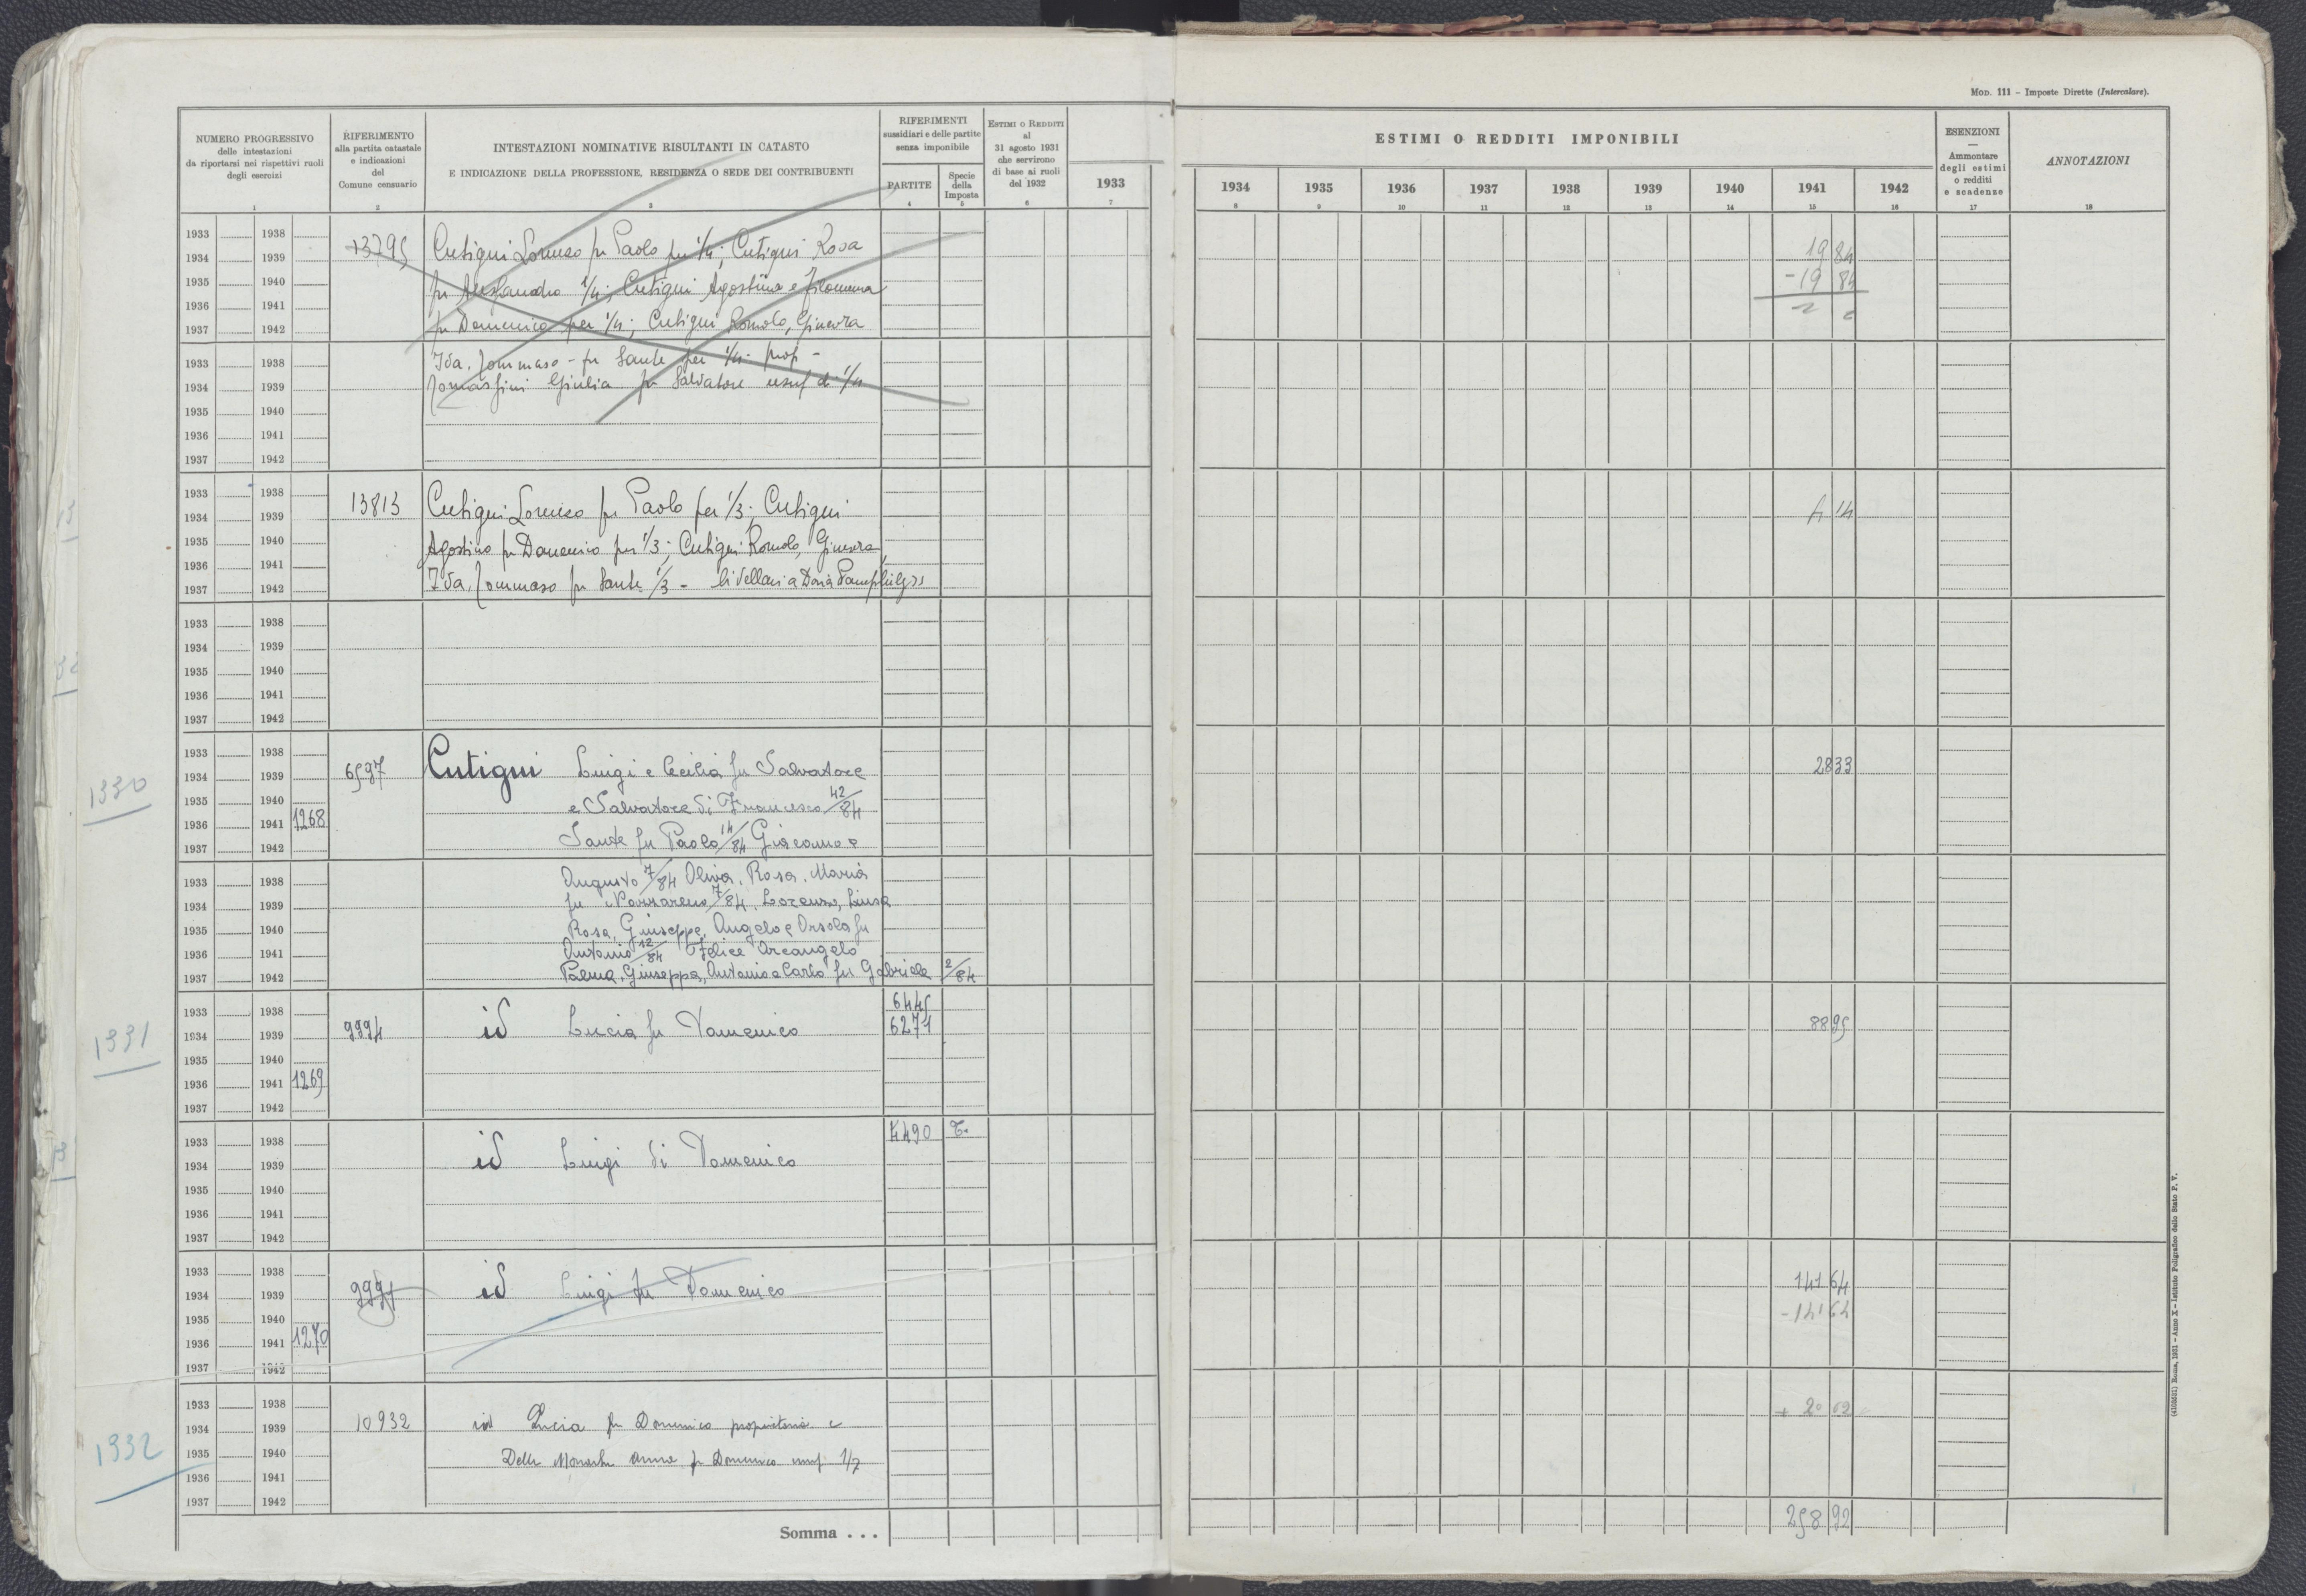 MOD. 111 – Imposte Dirette (Intercalare).
NUMERO PROGRESSIVO
delle intestazioni
da riportarsi nei rispettivi ruoli
degli esercizi
1
RIFERIMENTO
alla partita catastale
e indicazioni
del
Comune censuario
2
INTESTAZIONI NOMINATIVE RISULTANTI IN CATASTO
E INDICAZIONE DELLA PROFESSIONE, RESIDENZA O SEDE DEI CONTRIBUENTI
3
RIFERIMENTI
sussidiari e delle partite
senza imponibile
PARTITE
4
Specie
della
Imposta
5
ESTIMI O REDDITI
al
31 agosto 1931
che servirono
di base ai ruoli
del 1932
6
1933
7
ESTIMI O REDDITI IMPONIBILI
1934 1935 1936 1937 1938 1939 1940 1941 1942
8 9 10 11 12 13 14 15 16
ESENZIONI
—
Ammontare
degli estimi
o redditi
e scadenze
17
ANNOTAZIONI
18
1933 1938
1934 1939 13795 Cutigni Lorenzo fu Paolo per 1/4; Cutigni Rosa 19 84
1935 1940 fu Alessandro 1/4; Cutigni Agostino e Filomena - 19 84
1936 1941
1937 1942 fu Domenico per 1/4; Cutigni Romolo, Ginevra
1933 1938 Ida, Tommaso - fu Sante per 1/4 prop -
1934 1939 Tomassini Giulia fu Salvatore usuf di 1/4
1935 1940
1936 1941
1937 1942
1933 1938
1934 1939 13813 Cutigni Lorenzo fu Paolo per 1/3; Cutigni 4 14
1935 1940 Agostino fu Domenico per 1/3; Cutigni Romolo, Ginevra,
1936 1941
1937 1942 Ida, Tommaso fu Sante 1/3 - livellari a Doria Pamphilj
1933 1938
1934 1939
1935 1940
1936 1941
1937 1942
1933 1938
1330 1934 1939 6597 Cutigni Luigi e Cecilia fu Salvatore 28 33
1935 1940 e Salvatore di Francesco 42/84
1936 1941 1268
1937 1942 Sante fu Paolo 14/84 Giacomo e
1933 1938 Augusto 7/84 Oliva, Rosa, Maria
1934 1939 fu Nazzareno 7/84, Lorenzo, Luisa
1935 1940 Rosa, Giuseppe, Angelo e Orsola fu
1936 1941 Antonio 12/84 Felice Arcangelo
1937 1942 Palma, Giuseppa, Antonio e Carlo fu Gabriele 2/84
1933 1938 6445
1331 1934 1939 9994 id Lucia fu Domenico 6271 88 95
1935 1940
1936 1941 1269
1937 1942
1933 1938 4490 T.
1934 1939 id Luigi di Domenico
1935 1940
1936 1941
1937 1942
1933 1938
1934 1939 id Luigi fu Domenico 141 64
1935 1940 - 141 64
1936 1941 1270
1937 1942
1933 1938 + 20 02
1934 1939 10932 id Lucia fu Domenico proprietaria e
1332 1935 1940 Delle Monache Anna fu Domenico usuf 1/7
1936 1941
1937 1942
Somma . . . 258 92
(4103531) Roma, 1931 – Anno X – Istituto Poligrafico dello Stato P. V.